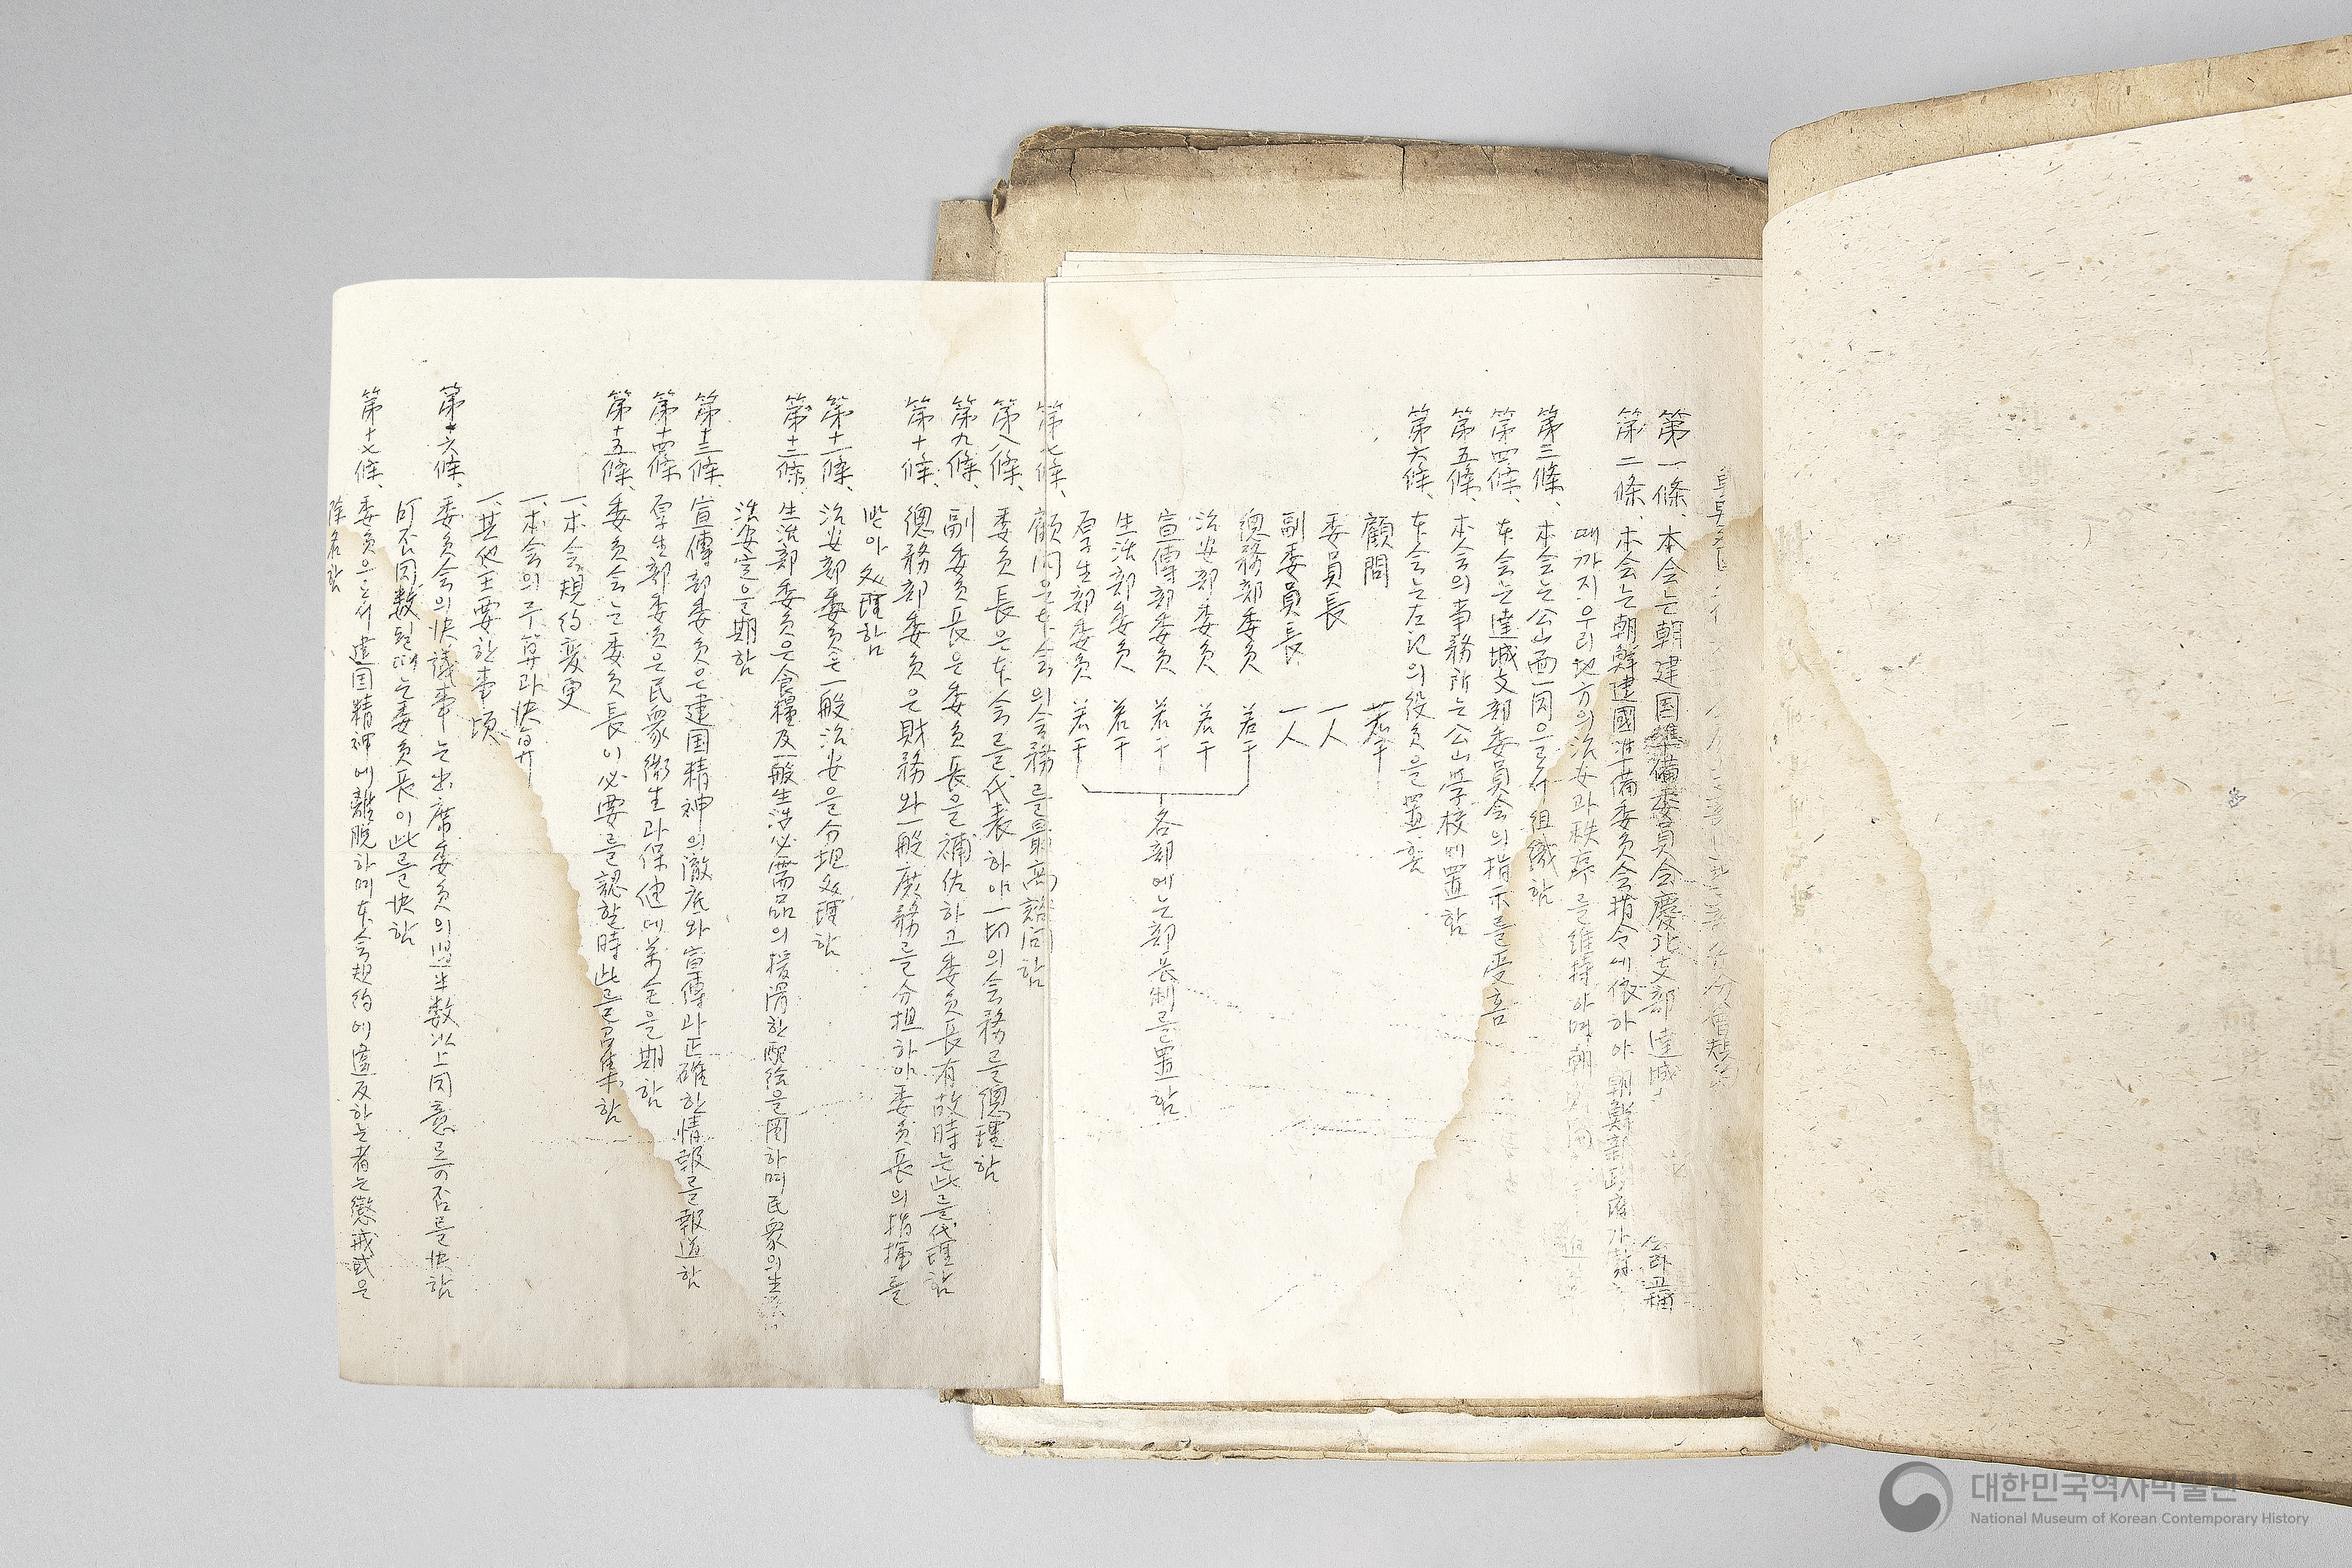 第一條、本会는朝建国準備委員会慶北支部達城
会라고稱
第二條、本会는朝鮮建國準備委員会措令에依하야朝鮮新政府가
때까지우리地方의治安과秩序를維持하며朝
第三條、本会는公山面一円으로서組織함
第四條、本会는達城支部委員会의指示를受홈
第五條、本会의事務所는公山学校에置함
第六條、本会는左記의役员을置홈
顧問 若干
委員長 一人
副委員長 一人
總務部委员 若干
治安部委员 若干
宣傳部委员 若干
生活部委员 若干
厚生部委员 若干
各部에는部長制를置함
第七條、顧问은本会의会務를最高諮问함
第八條、委员長은本会를代表하야一切의会務를總理함
第九條、副委员長은委员長을補佐하고委员長有故時는此를代理함
第十條、總務部委员은財務와一般庶務를分担하야委员長의指揮를
받아處理함
第十一條、治安部委员은一般治安을分担處理함
第十二條、生活部委员은食糧及一般生活必需品의援滑한配給을圖하며民衆의生
活安定을期함
第十三條、宣傳部委员은建国精神의徹底와宣傳과正確한情報를報道함
第十四條、厚生部委员은民衆衛生과保健에萬全을期함
第十五條、委员会는委员長이必要를認할時此를召集함
一、本会規约変更
一、本会의予算과决算
一、其他主要한事項
第十六條、委员会의决議事는出席委员의過半数以上同意로可否를决함
可否同数될때는委员長이此를决함
第十七條、委员으로서建国精神에離脱하며本会規约에違反하는者는懲戒或은
除名함
대한민국역사박물관
National Museum of Korean Contemporary History